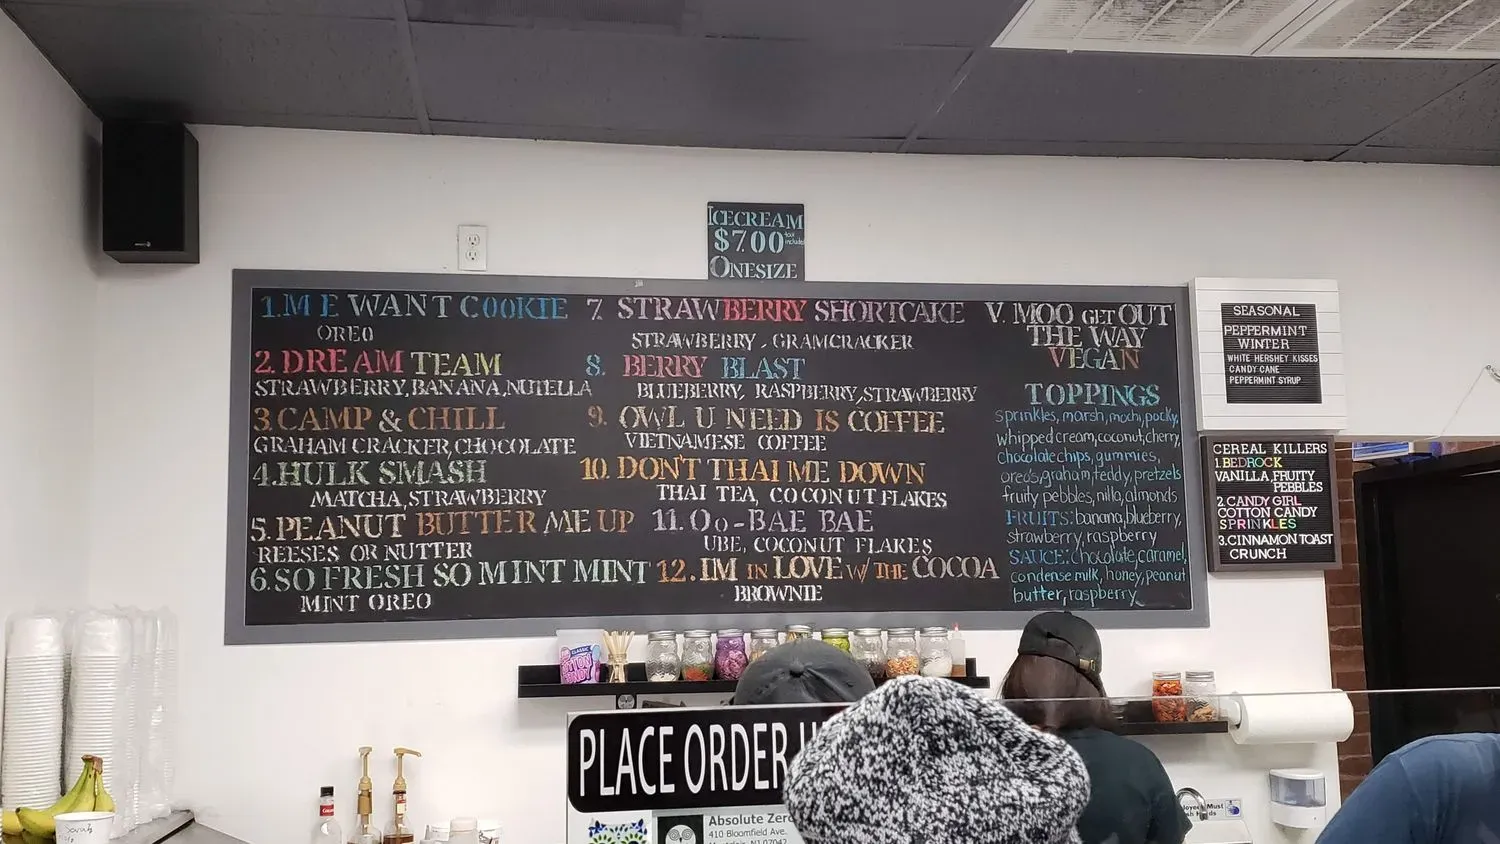 ICECREAM
$7.00 tax included
ONESIZE
1.ME WANT COOKIE
OREO
2. DREAM TEAM
STRAWBERRY, BANANA, NUTELLA
3. CAMP & CHILL
GRAHAM CRACKER, CHOCOLATE
4.HULK SMASH
MATCHA, STRAWBERRY
5. PEANUT BUTTER ME UP
REESES OR NUTTER
6.SO FRESH SO MINT MINT
MINT OREO
7. STRAWBERRY SHORTCAKE
STRAWBERRY, GRAMCRACKER
8. BERRY BLAST
BLUEBERRY, RASPBERRY, STRAWBERRY
9. OWL U NEED IS COFFEE
VIETNAMESE COFFEE
10. DON'T THAI ME DOWN
THAI TEA, COCONUT FLAKES
11. Oo-BAE BAE
UBE, COCONUT FLAKES
12. IM IN LOVE W/ THE COCOA
BROWNIE
V. MOO GET OUT
THE WAY
VEGAN
TOPPINGS
sprinkles, marsh, mochi, pocky,
whipped cream, coconut, cherry,
chocolate chips, gummies,
oreos, graham, teddy, pretzels
fruity pebbles, nilla, almonds
FRUITS: banana, blueberry,
strawberry, raspberry
SAUCE: chocolate, caramel,
condense milk, honey, peanut
butter, raspberry
SEASONAL
PEPPERMINT
WINTER
WHITE HERSHEY KISSES
CANDY CANE
PEPPERMINT SYRUP
CEREAL KILLERS
1.BEDROCK
VANILLA, FRUITY
PEBBLES
2.CANDY GIRL
COTTON CANDY
SPRINKLES
3.CINNAMON TOAST
CRUNCH
PLACE ORDER
Absolute Zero
410 Bloomfield Ave.
NJ 07042
CLASSIC
Sarah
Must